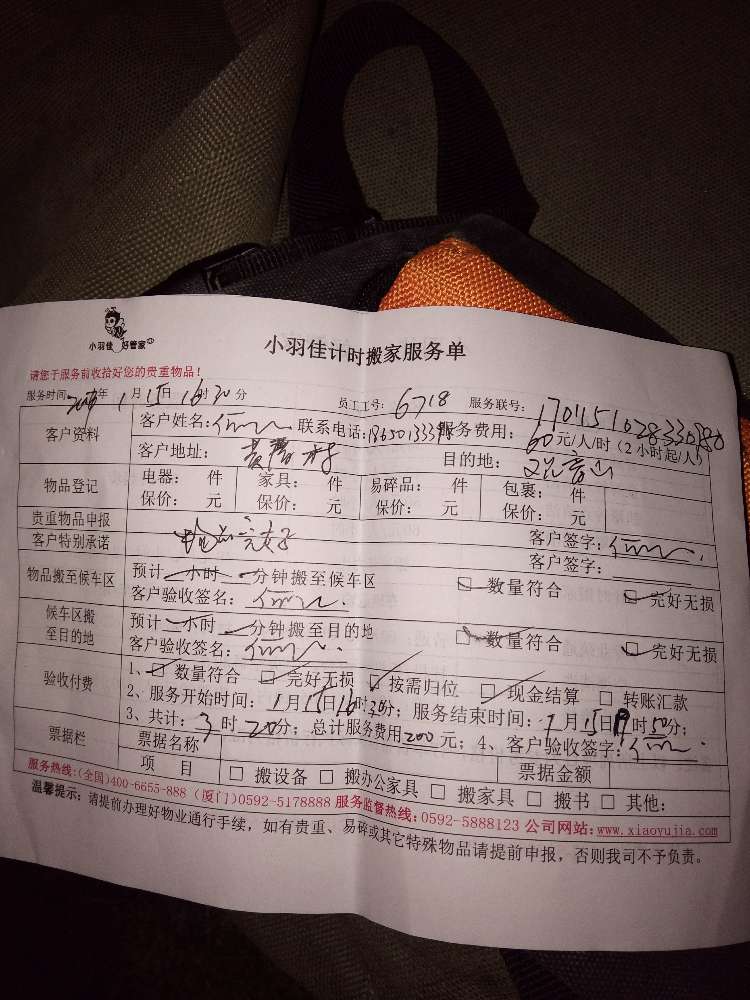 小羽佳 好管家
小羽佳计时搬家服务单
请您于服务前收拾好您的贵重物品！
服务时间: 年 1月15日16时30分 员工工号: 6718 服务联号:
客户资料 客户姓名: 联系电话: 服务费用: 60元/人/时（2小时起/人）
客户地址: 目的地:
物品登记 电器: 件 家具: 件 易碎品: 件 包裹: 件
保价: 元 保价: 元 保价: 元 保价: 元
贵重物品申报 客户签字:
客户特别承诺 客户签字:
物品搬至候车区 预计 小时 分钟搬至候车区 □ 数量符合 □ 完好无损
客户验收签名:
候车区搬至目的地 预计 小时 分钟搬至目的地 □ 数量符合 □ 完好无损
客户验收签名:
验收付费 1、□ 数量符合 □ 完好无损 □ 按需归位 □ 现金结算 □ 转账汇款
2、服务开始时间: 1月15日16时30分; 服务结束时间: 1月15日19时50分;
3、共计: 3时20分; 总计服务费用200元; 4、客户验收签字:
票据栏 票据名称 票据金额
项 目 □ 搬设备 □ 搬办公家具 □ 搬家具 □ 搬书 □ 其他:
服务热线:(全国)400-6655-888 (厦门)0592-5178888 服务监督热线:0592-5888123 公司网站:www.xiaoyujia.com
温馨提示: 请提前办理好物业通行手续，如有贵重、易碎或其它特殊物品请提前申报，否则我司不予负责。